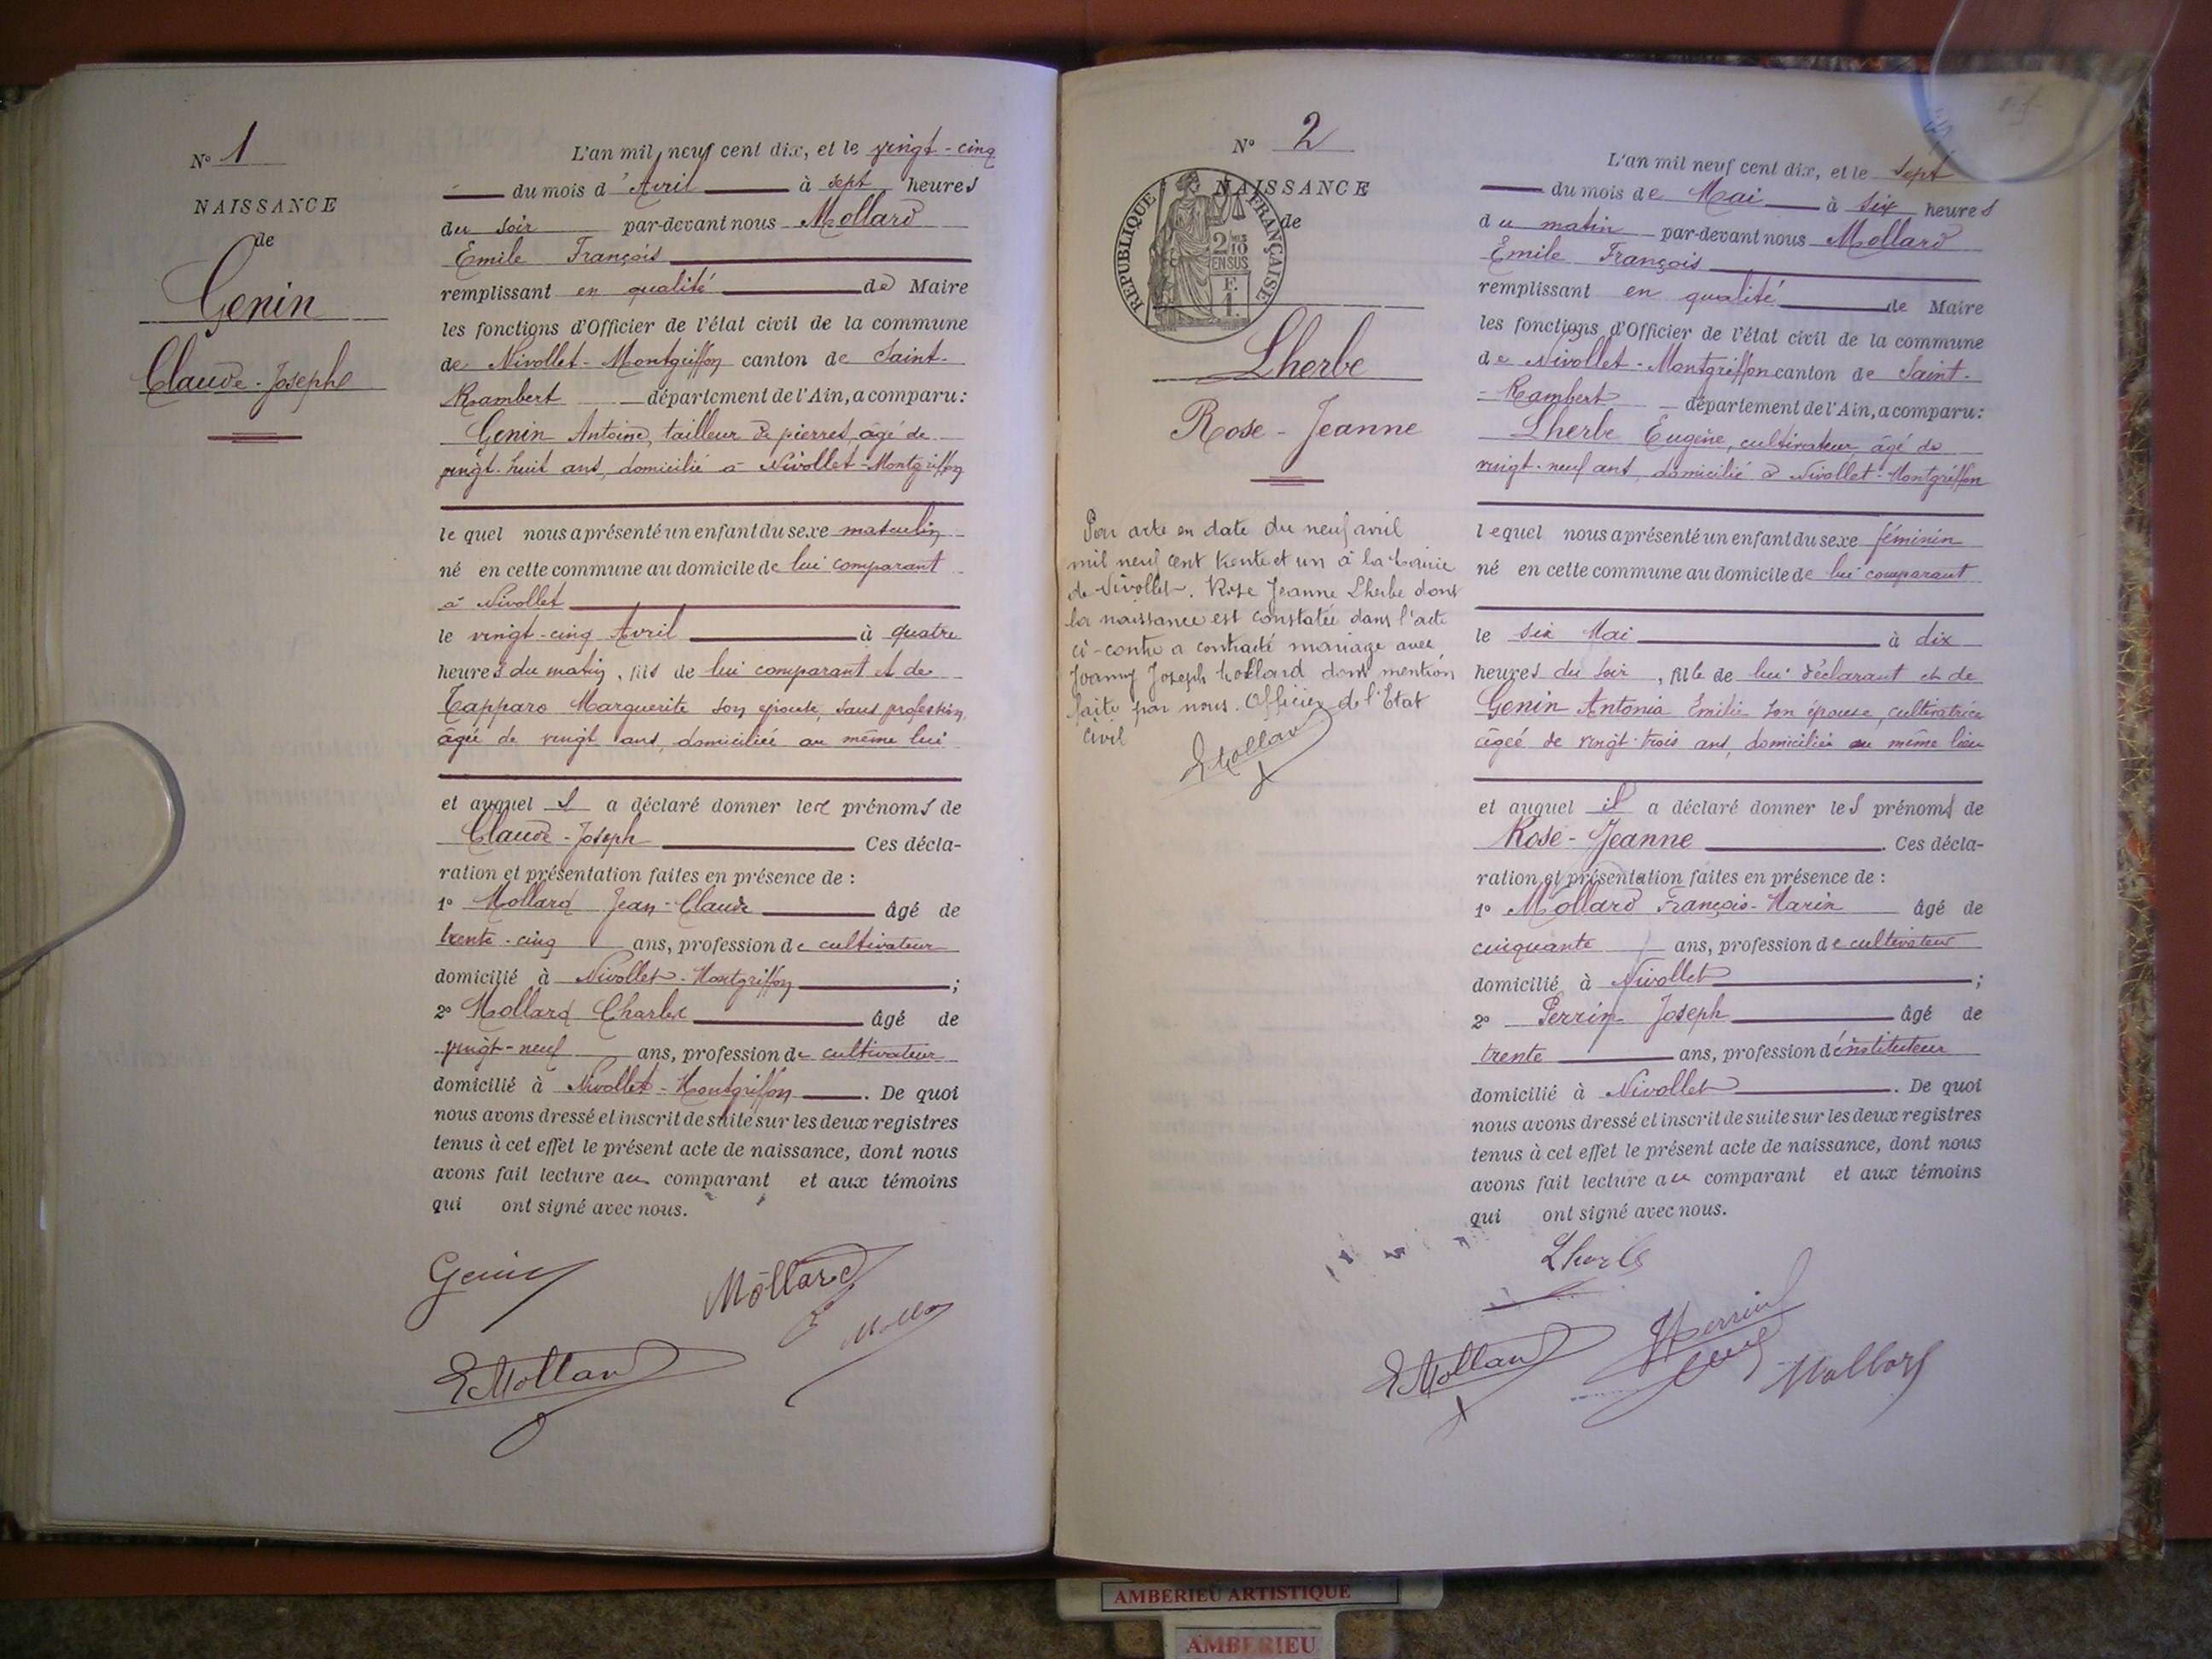 N° 1
NAISSANCE
de
Genin
Claude-Joseph
L'an mil neuf cent dix, et le vingt-cinq
du mois d'Avril à sept heures
du soir par-devant nous Mollard
Emile François
remplissant en qualité de Maire
les fonctions d'Officier de l'état civil de la commune
de Nivollet-Montgriffon canton de Saint-
Rambert département de l'Ain, a comparu:
Genin Antoine, tailleur de pierres, âgé de
vingt-huit ans, domicilié à Nivollet-Montgriffon
lequel nous a présenté un enfant du sexe masculin
né en cette commune au domicile de lui comparant
à Nivollet
le vingt-cinq Avril à quatre
heures du matin, fils de lui comparant et de
Tapparo Marguerite son épouse, sans profession,
âgée de vingt ans, domiciliée au même lui
et auquel il a déclaré donner les prénoms de
Claude-Joseph Ces décla-
ration et présentation faites en présence de :
1° Mollard Jean-Claude âgé de
trente-cinq ans, profession de cultivateur
domicilié à Nivollet-Montgriffon ;
2° Mollard Charles âgé de
vingt-neuf ans, profession de cultivateur
domicilié à Nivollet-Montgriffon . De quoi
nous avons dressé et inscrit de suite sur les deux registres
tenus à cet effet le présent acte de naissance, dont nous
avons fait lecture au comparant et aux témoins
qui ont signé avec nous.
Genin
Mollard
EMollard
N° 2
NAISSANCE
de
RÉPUBLIQUE FRANÇAISE
2/10
EN SUS
F.
1.
Lherbe
Rose-Jeanne
Par acte en date du neuf avril
mil neuf cent trente et un à la Mairie
de Nivollet. Rose Jeanne Lherbe dont
la naissance est constatée dans l'acte
ci-contre a contracté mariage avec
Joanny Joseph Mollard dont mention
faite par nous. Officier de l'Etat
Civil
EMollard
L'an mil neuf cent dix, et le sept
du mois de Mai à six heures
du matin par-devant nous Mollard
Emile François
remplissant en qualité de Maire
les fonctions d'Officier de l'état civil de la commune
de Nivollet-Montgriffon canton de Saint-
Rambert département de l'Ain, a comparu:
Lherbe Eugène, cultivateur, âgé de
vingt-neuf ans, domicilié à Nivollet-Montgriffon
lequel nous a présenté un enfant du sexe féminin
né en cette commune au domicile de lui comparant
le six Mai à dix
heures du soir, fille de lui déclarant et de
Genin Antonia Emilie son épouse, cultivatrice
âgée de vingt-trois ans, domiciliée au même lieu
et auquel il a déclaré donner les prénoms de
Rose-Jeanne . Ces décla-
ration et présentation faites en présence de :
1° Mollard François-Marin âgé de
cinquante ans, profession de cultivateur
domicilié à Nivollet ;
2° Perrin Joseph âgé de
trente ans, profession d'instituteur
domicilié à Nivollet . De quoi
nous avons dressé et inscrit de suite sur les deux registres
tenus à cet effet le présent acte de naissance, dont nous
avons fait lecture au comparant et aux témoins
qui ont signé avec nous.
Lherbe
EMollard
JPerrin
Mollard
AMBERIEU ARTISTIQUE
AMBERIEU